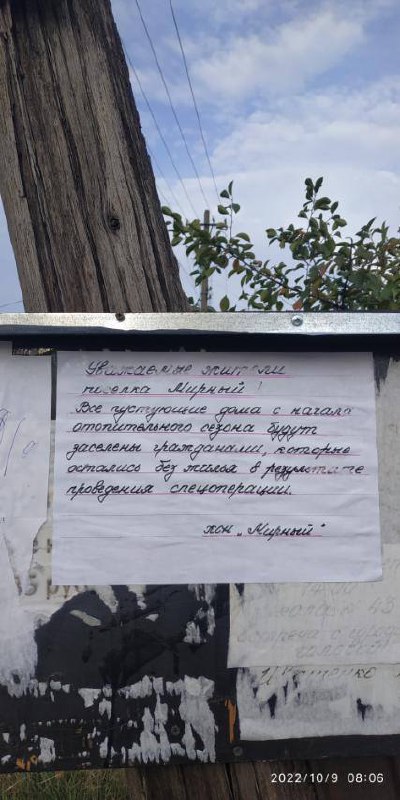 Уважаемые жители
поселка Мирный!
Все пустующие дома с начала
отопительного сезона будут
заселены гражданами, которые
остались без жилья в результате
проведения спецоперации.
"Мирный"
2022/10/9 08:06